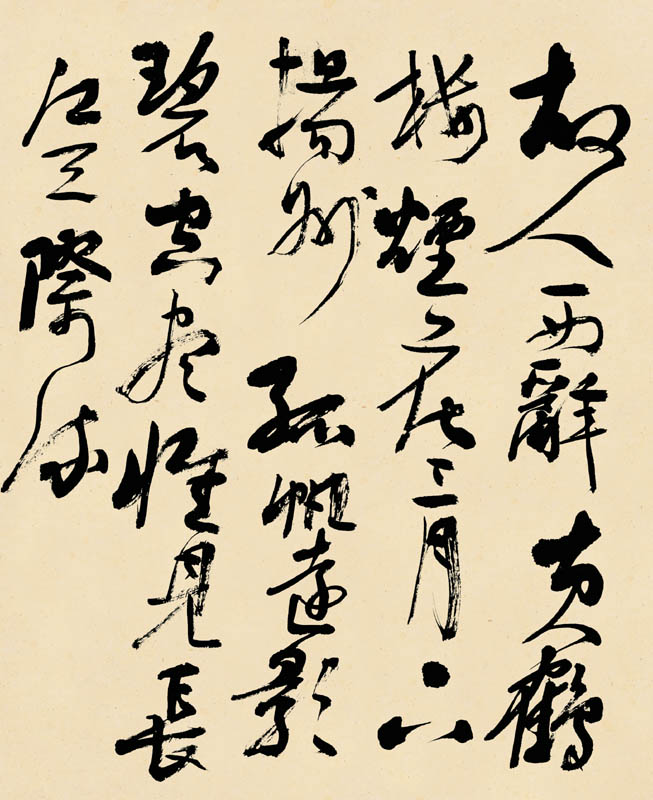 故人西辭黃鶴
樓煙花三月下
揚州孤帆遠影
碧空盡惟見長
江天際流